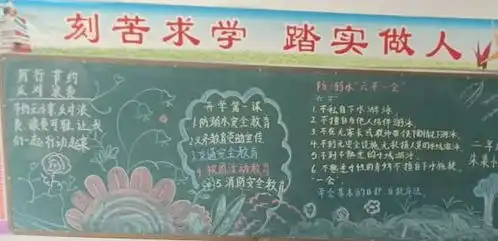 刻苦求学 踏实做人
厉行节约
反对浪费
节约光荣反对浪
费，浪费可耻，让我
们一起行动起来
开学第一课
1.防溺水安全教育
2.义务教育活动宣传
3.交通安全教育
4.校园活动教育
5.消防安全教育
防溺水"六不一会"
六不
1.不私自下水游泳
2.不擅自与他人结伴游泳
3.不在无家长或教师带领的情况下游泳
4.不到无安全设施、无救援人员的水域游泳
5.不到不熟悉的水域游泳
6.不熟悉水性的学生不擅自下水施救
一会：
学会基本的自护、自救方法
二年
朱